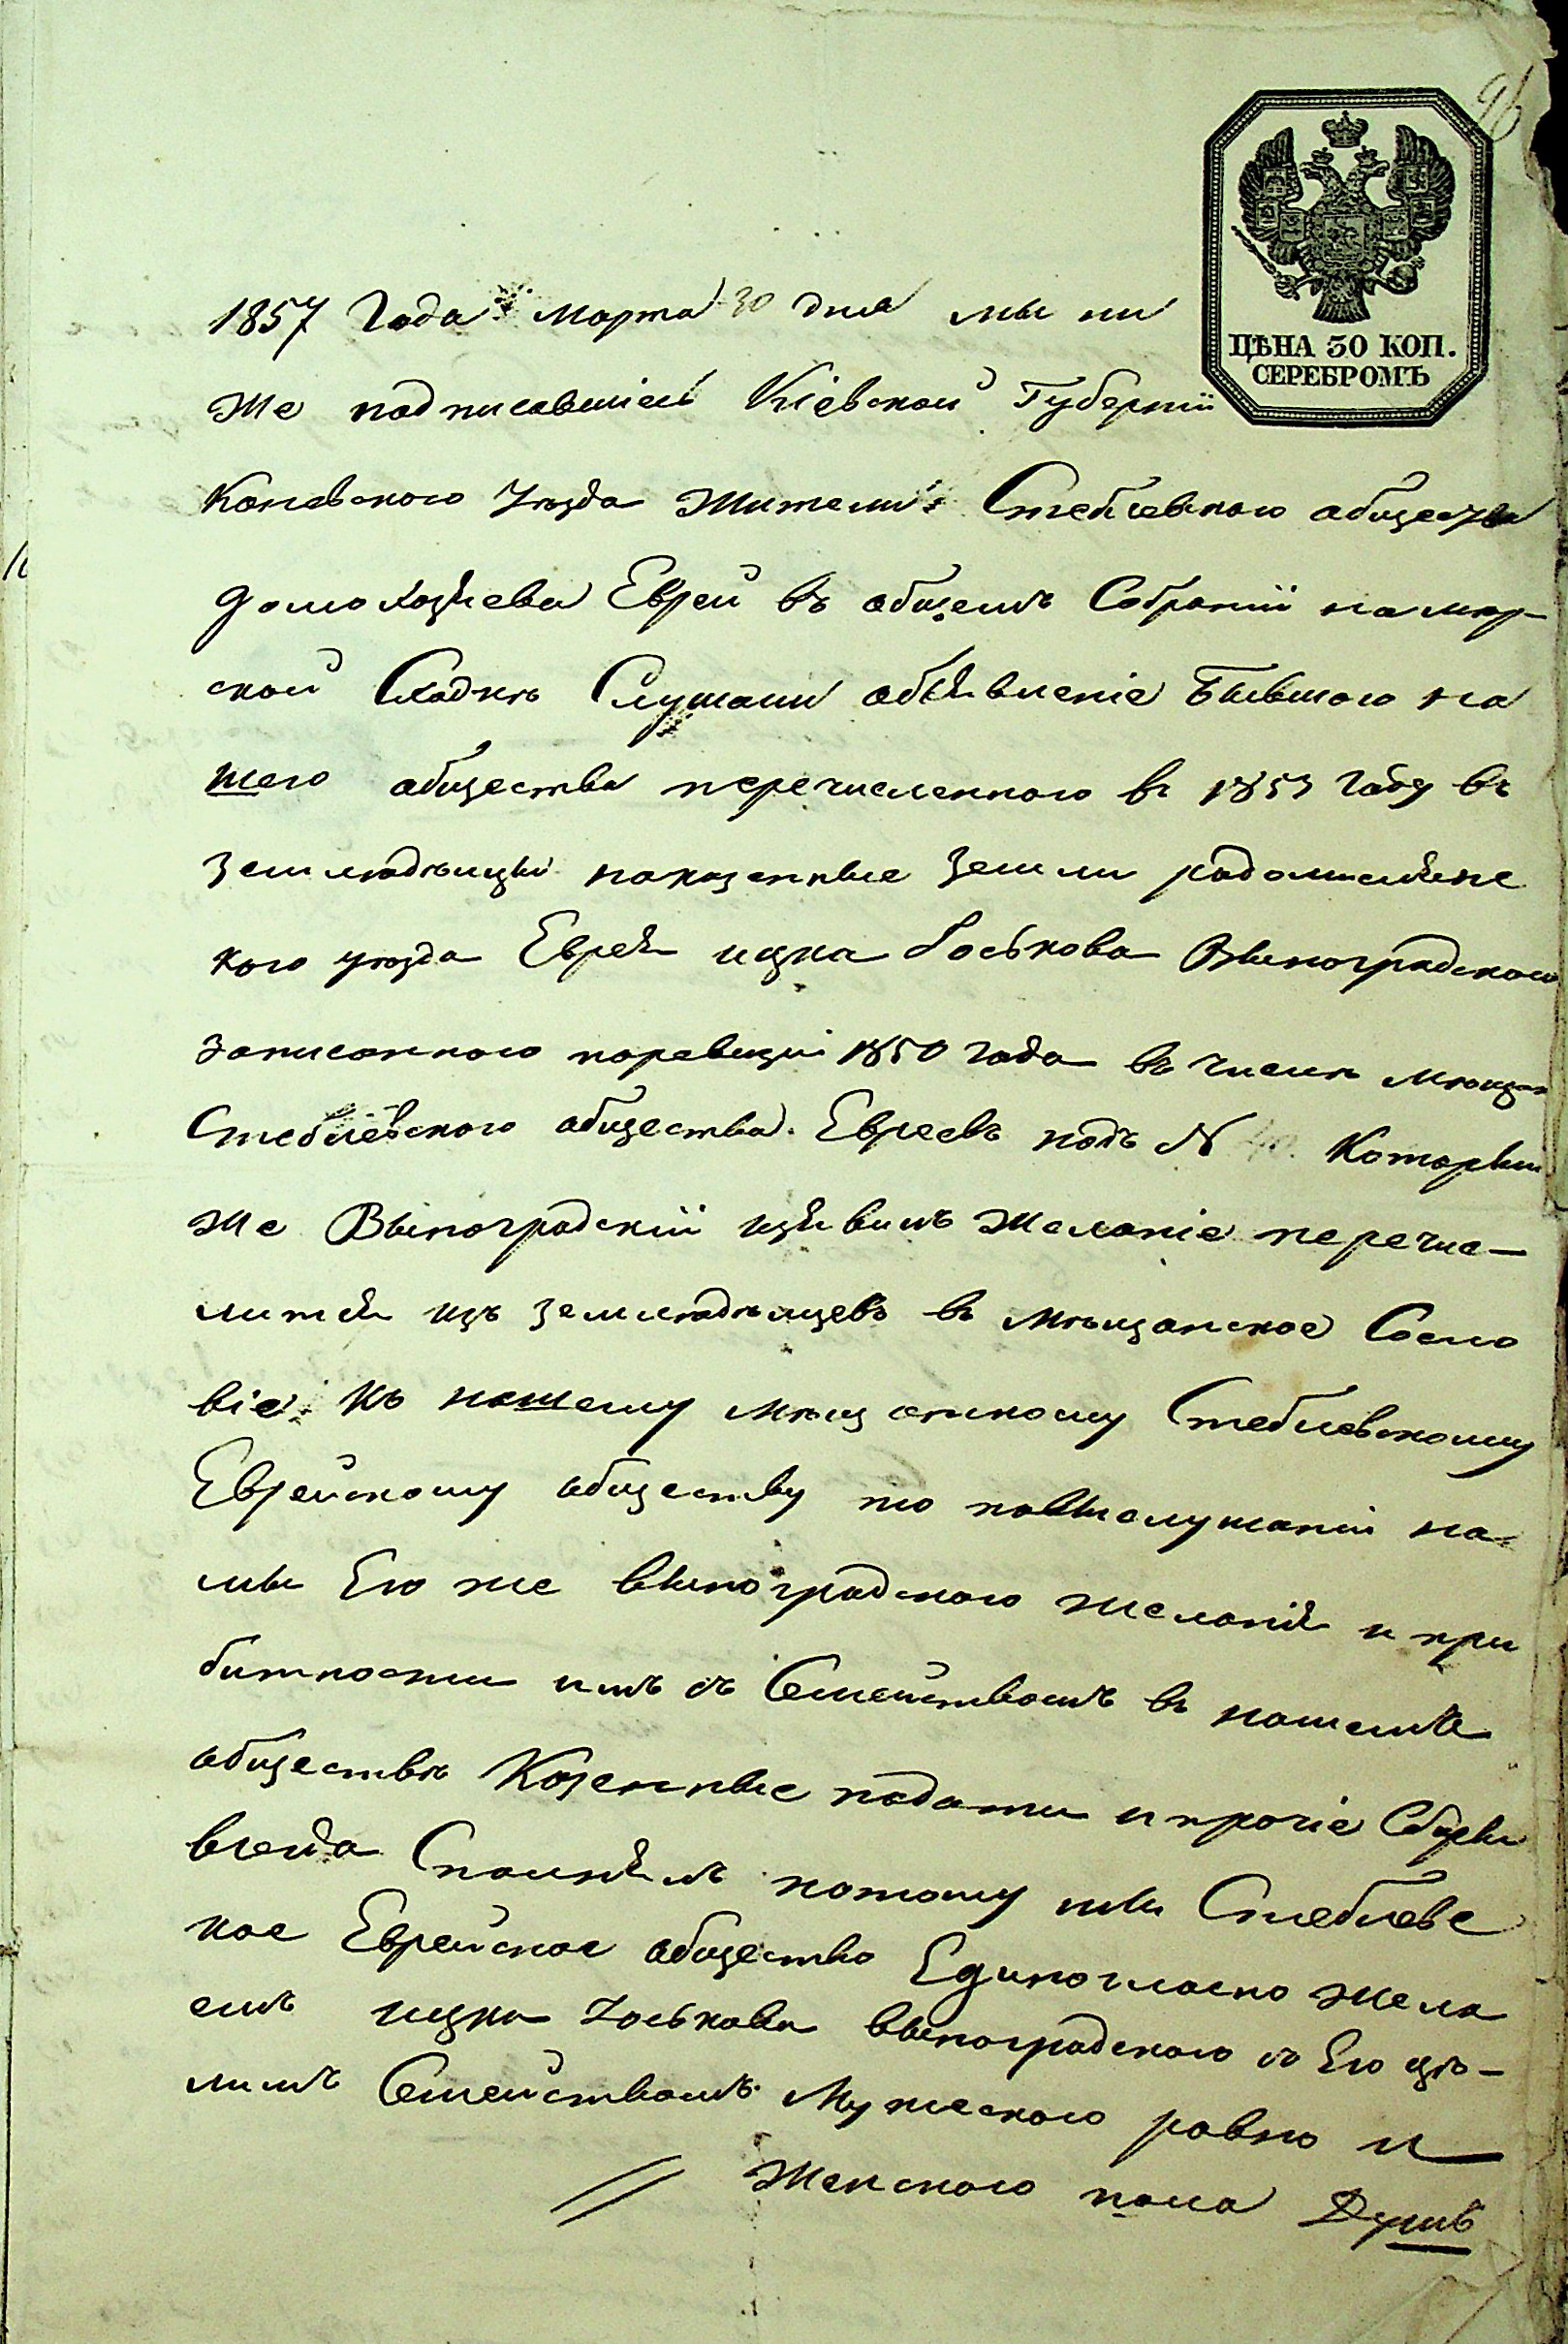 96
ЦѢНА 30 КОП.
СЕРЕБРОМЪ
1857 Года Марта 30 дня мы ни
же подписавшіесь Кіевской Губерніи
Каневского Уѣзда жители Стеблевского общества
домохозяева Евреи въ общемъ Собраніи на мир-
ской Сходкѣ Слушали объявленіе Бывшого на
шего общества перечисленного въ 1853 Году въ
землѣдѣльцы наказенные Земли радомысльс
кого уѣзда Еврея ицка Іоськова Выноградского
записанного поревизіи 1850 года въ числѣ мѣщан
Стеблевского общества Евреевъ подъ N 40. Который
же Выноградскій изявилъ желаніе перечис-
литься изъ землѣдѣльцевъ въ мѣщанское Сосло
віе къ нашему мѣщанскому Стеблевскому
Еврейскому обществу то повыслушаніи на-
мы Его же выноградского желанія и при
битности имъ съ Семействомъ въ нашемъ
обществѣ Казенные подати и прочіе Сборы
всегда Сполнялъ потому мы Стеблевс
кое Еврейское общество Единогласно жела
емъ ицка Іоськова выноградского съ Его цѣ-
лимъ Семействомъ Мужеского равно и
женского пола Душъ